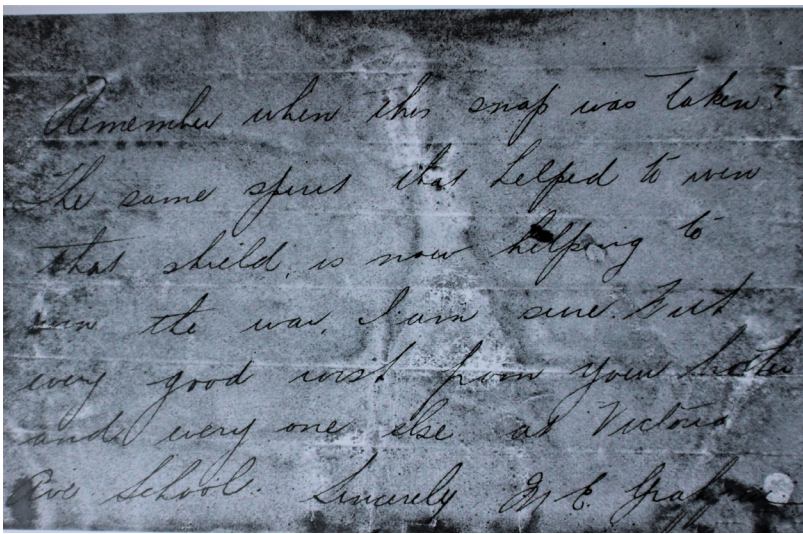 Remember when this snap was taken?
The same spirit that helped to win
that shield, is now helping to
win the war, I am sure. With
every good wish from your
and every one else at Victoria
Ave School. Sincerely M E. Graham.